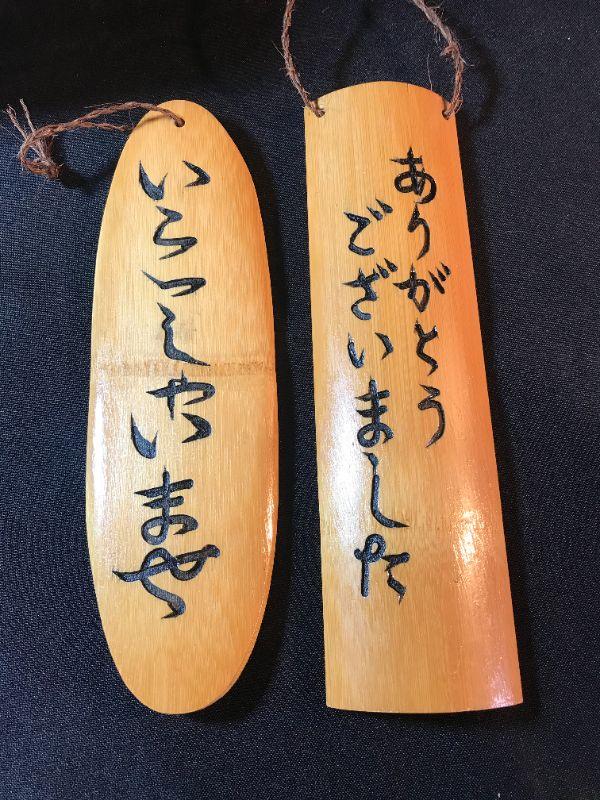 いらっしゃいませ
ありがとう
ございました